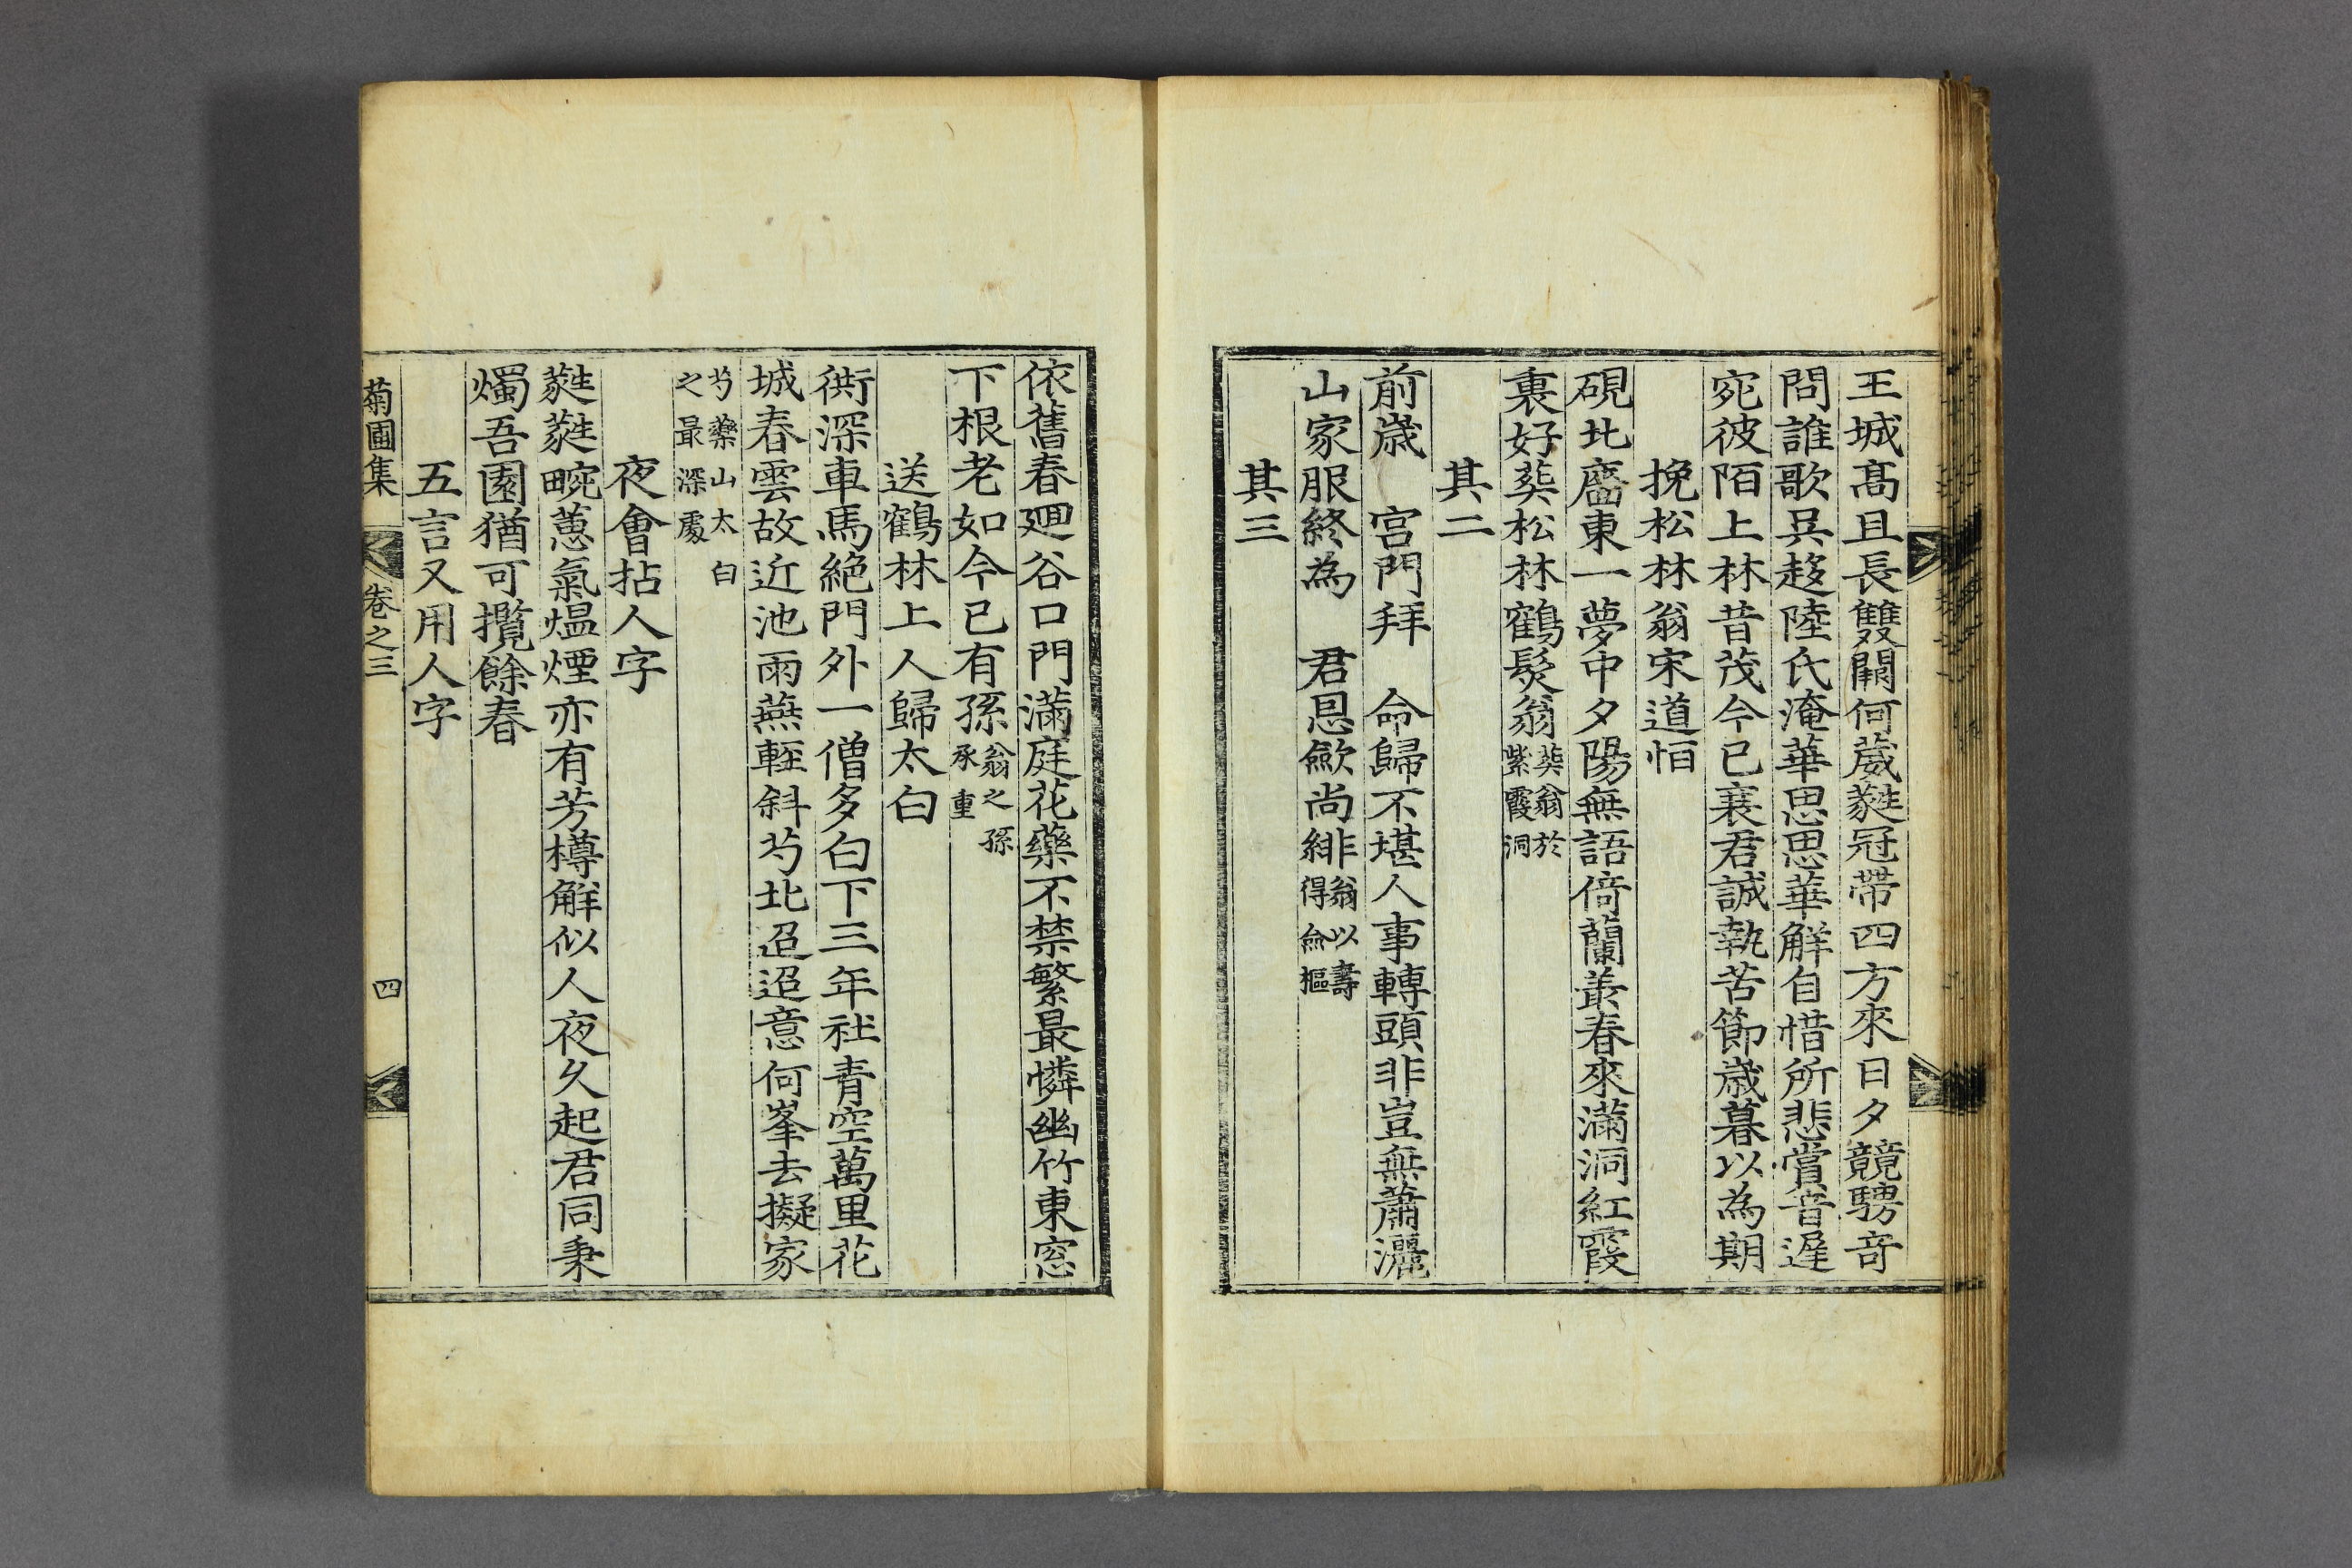 王城髙且長雙闕何葳蕤冠帶四方來日夕競騁竒
問誰歌吳趍陸氏淹華思思華觧自惜所悲賞音遅
宛彼陌上林昔茂今已衰君誠執苦節歳暮以為期
挽松林翁宋道恒
硯北廬東一夢中夕陽無語倚蘭叢春來滿洞紅霞
裏好葬松林鶴髮翁葬翁於紫霞洞
其二
前歳 宫門拜 命歸不堪人事轉頭非豈無蕭灑
山家服終為 君恩歛尚緋翁以壽得僉樞
其三
依舊春廻谷口門滿庭花藥不禁繁最憐幽竹東窓
下根老如今已有孫翁之孫承重
送鶴林上人歸太白
衖深車馬絶門外一僧多白下三年社青空萬里花
城春雲故近池雨燕輕斜芍北迢迢意何峯去擬家
芍藥山太白之最深處
夜會拈人字
蕤蕤畹蕙氣煴煙亦有芳樽觧似人夜久起君同秉
燭吾園猶可攬餘春
五言又用人字
菊圃集 卷之三 四